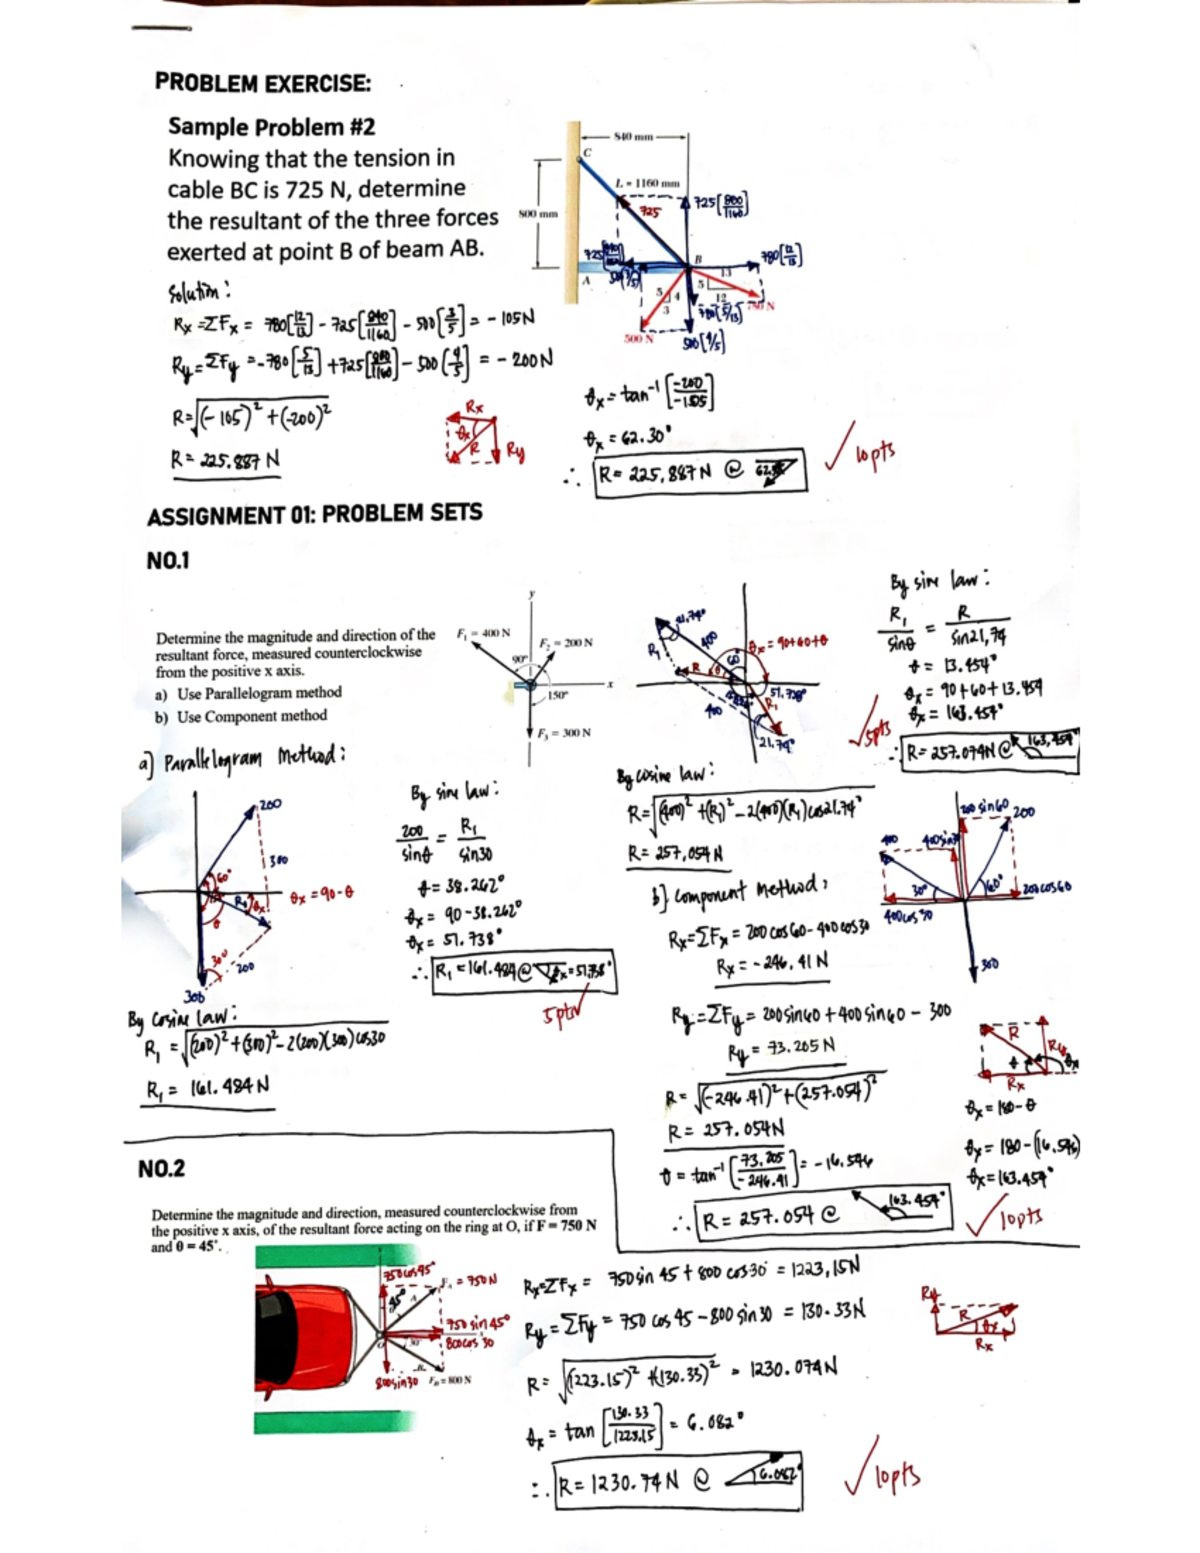 PROBLEM EXERCISE:
Sample Problem #2
Knowing that the tension in
cable BC is 725 N, determine
the resultant of the three forces
exerted at point B of beam AB.
840 mm
C
L = 1160 mm
800 mm
725
725[800/1160]
780[12/13]
B
A
13
5
12
5
4
3
780 N
780[5/13]
500 N
500[4/5]
Solution:
Rx = ΣFx = 780[12/13] - 725[840/1160] - 500[3/5] = - 105N
Ry = ΣFy = -780[5/13] + 725[800/1160] - 500[4/5] = - 200N
R = √(-105)² + (-200)²
R = 225.887 N
Rx
θx
R
Ry
θx = tan⁻¹[-200/-105]
θx = 62.30°
∴ R = 225,887N @
10pts
ASSIGNMENT 01: PROBLEM SETS
NO.1
Determine the magnitude and direction of the
resultant force, measured counterclockwise
from the positive x axis.
a) Use Parallelogram method
b) Use Component method
y
F₁ = 400 N
F₂ = 200 N
90°
x
150°
F₃ = 300 N
21.74°
400
R₁
60°
θx = 90+60+θ
R
θ
51.738°
R₁
400
21.74°
By sine law:
R₁/sinθ = R/sin21,74
θ = 13.454°
θx = 90+60+13.454
θx = 163.454°
∴ R = 257.074N @ 163,454°
5pts
a) Parallelogram Method:
200
300
60°
θx = 90-θ
R₁
θx
θ
30°
200
300
By sine law:
200/sinθ = R₁/sin30
θ = 38.262°
θx = 90-38.262°
θx = 51.738°
∴ R₁ = 161.484 @ θx = 51.738°
5pts
By Cosine law:
R₁ = √(200)² + (300)² - 2(200)(300)cos30
R₁ = 161.484 N
By cosine law:
R = √(400)² + (R₁)² - 2(400)(R₁)cos21.74°
R = 257,054 N
200 sin60
200
400
400sin30
30°
60°
200cos60
400cos30
300
b) Component Method:
Rx = ΣFx = 200 cos60 - 400cos30
Rx = - 246.41 N
Ry = ΣFy = 200sin60 + 400sin60 - 300
Ry = 73.205 N
R = √(-246.41)² + (257.054)²
R = 257.054N
θ = tan⁻¹[73.205/-246.41] = - 16.546
∴ R = 257.054 @ 163.454°
R
Ry
θ
θx
Rx
θx = 180-θ
θx = 180-(16.546)
θx = 163.454°
10pts
NO.2
Determine the magnitude and direction, measured counterclockwise from
the positive x axis, of the resultant force acting on the ring at O, if F = 750 N
and θ = 45°.
750cos45°
45°
A
= 750N
750 sin45°
800cos 30
30°
B
800sin30
F_B = 800 N
Rx = ΣFx = 750sin 45 + 800 cos30 = 1223,15N
Ry = ΣFy = 750 cos 45 - 800 sin 30 = 130.33N
R = √(1223.15)² + (130.33)² = 1230.074N
θx = tan [130.33/1223.15] = 6.082°
∴ R = 1230.74N @ 6.082°
Ry
R
θx
Rx
10pts